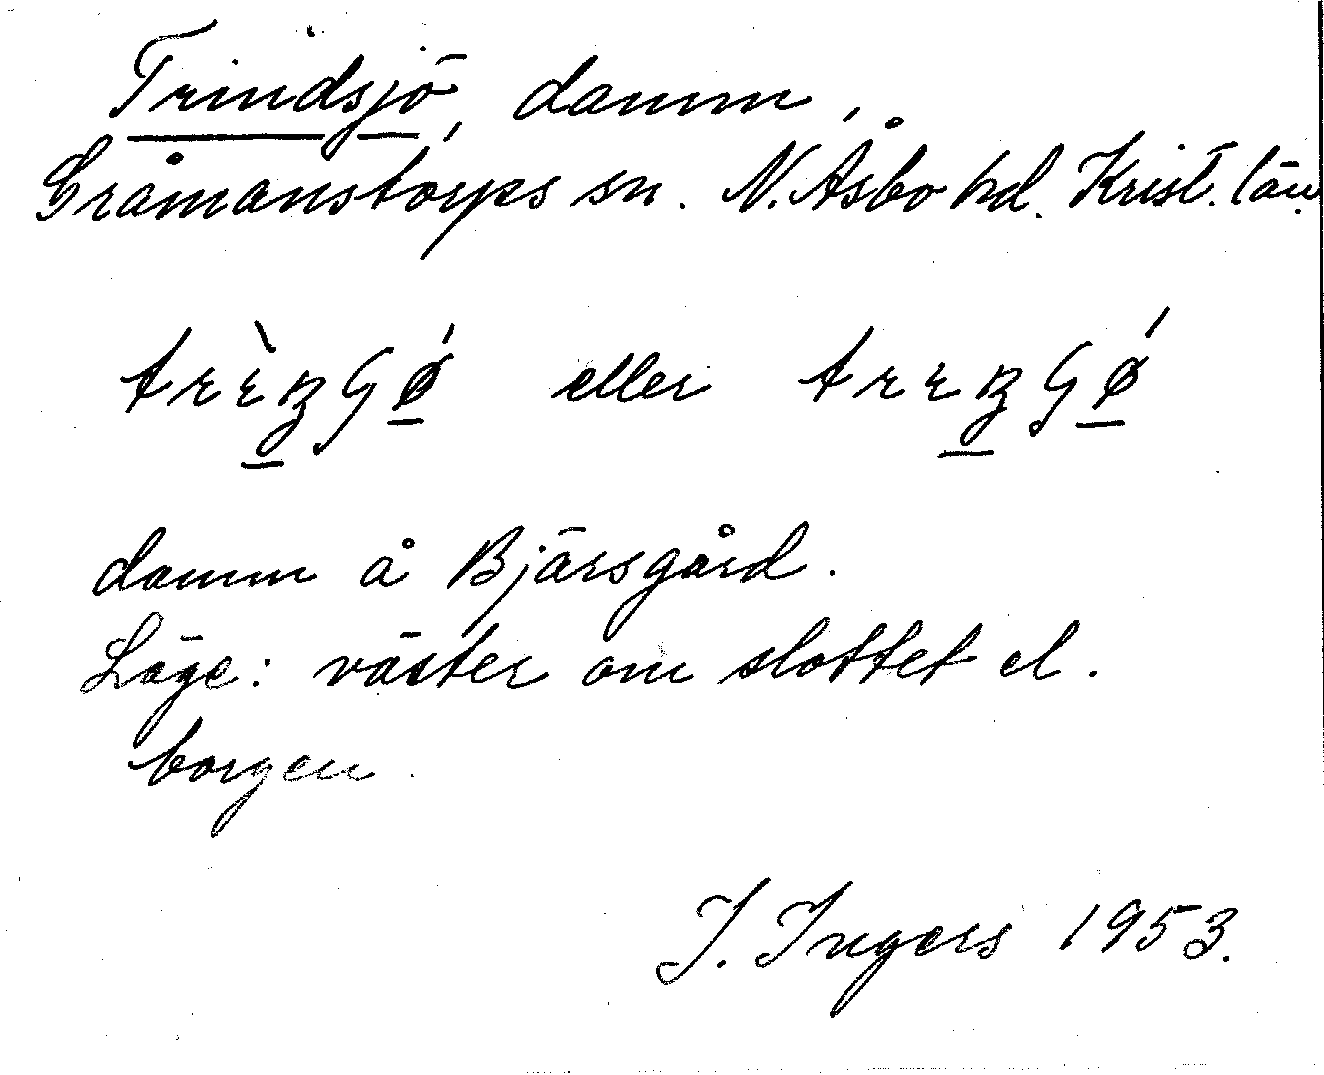 Trindsjö, damm,
Gråmanstorps sn. N. Åsbo hd. Krist. län.
eller
damm å Bjärsgård.
Läge: väster om slottet el.
borgen.
I. Ingers 1953.